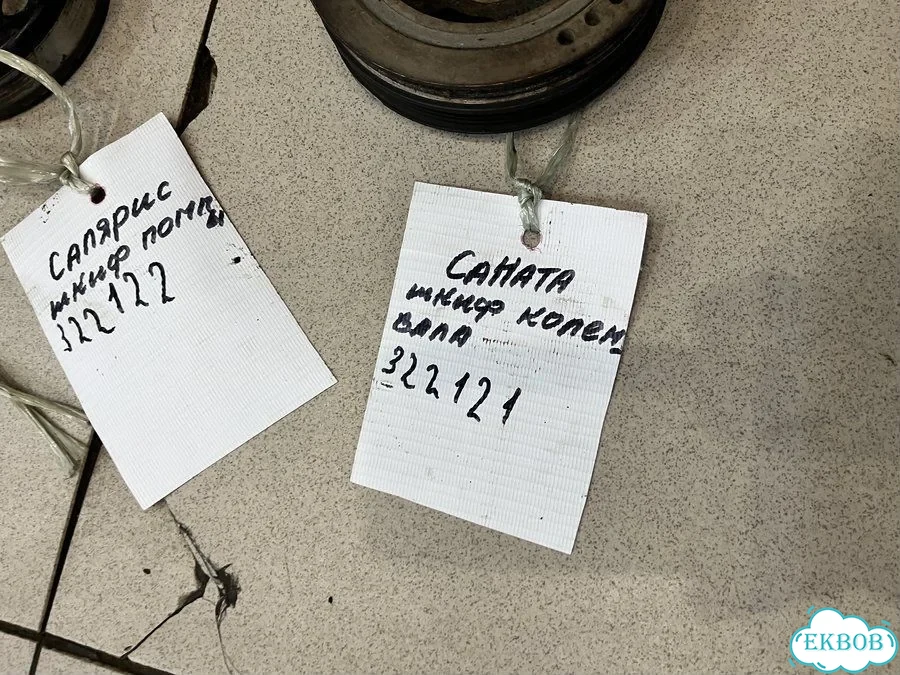 СаЛЯРИС
шкиф помпы
322122
СаНАТА
шкиф колен
вала
322121
EKBOB